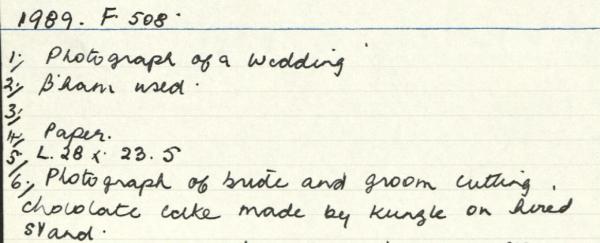 1989. F. 508.
1, Photograph of a wedding
2, B'ham used.
3,
4, Paper.
5, L. 28 x 23.5
6, Photograph of bride and groom cutting.
chocolate cake made by Kunzle on hired
stand.